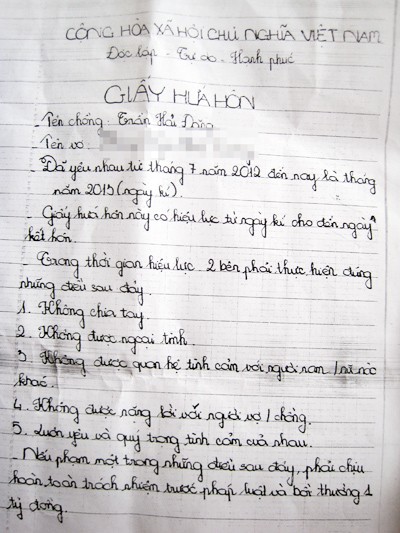 CỘNG HÒA XÃ HỘI CHỦ NGHĨA VIỆT NAM
Độc lập - Tự do - Hạnh phúc
GIẤY HỨA HÔN
- Tên chồng: Trần Hải Đăng
- Tên vợ:
- Đã yêu nhau từ tháng 7 năm 2012 đến nay là tháng
năm 2013 (ngày kí).
- Giấy hứa hôn này có hiệu lực từ ngày kí cho đến ngày
kết hôn.
- Trong thời gian hiệu lực. 2 bên phải thực hiện đúng
những điều sau đây.
1. Không chia tay.
2. Không được ngoại tình.
3. Không được quan hệ tình cảm với người nam / nữ nào
khác.
4. Không được nặng lời với người vợ / chồng.
5. Luôn yêu và quý trọng tình cảm của nhau.
- Nếu phạm một trong những điều sau đây, phải chịu
hoàn toàn trách nhiệm trước pháp luật và bồi thường 1
tỷ đồng.